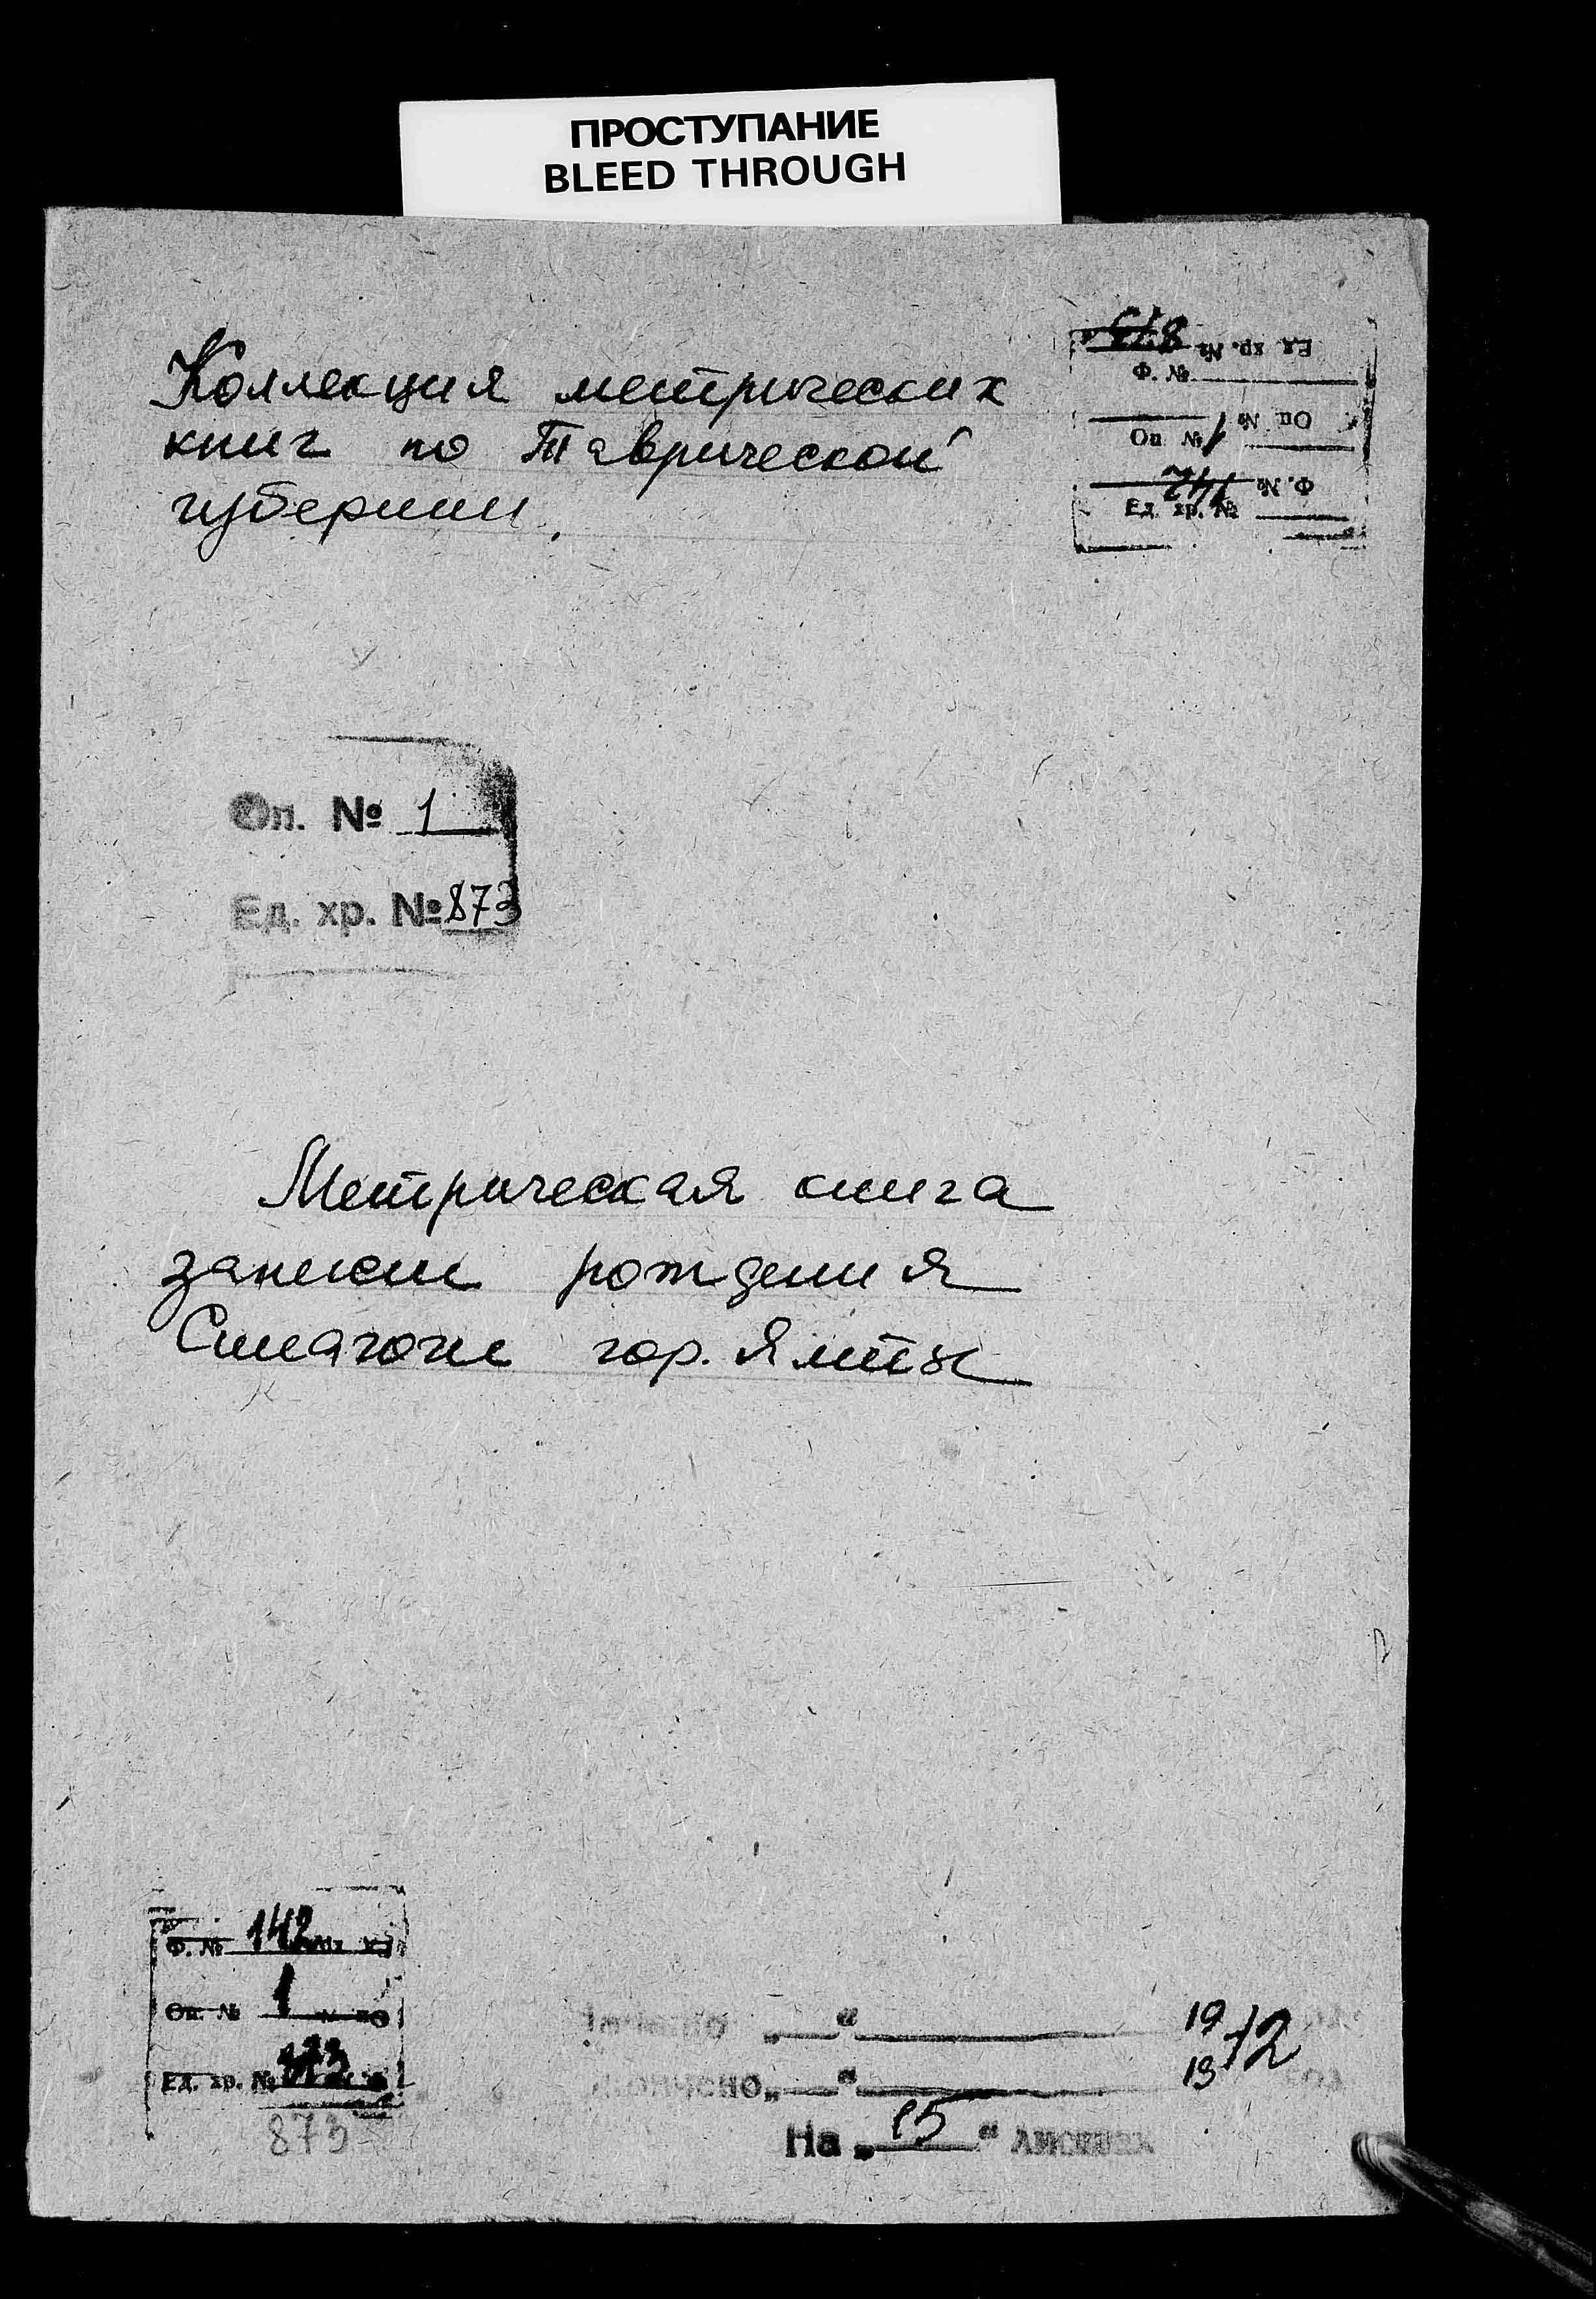 ПРОСТУПАНИЕ
BLEED THROUGH
Коллекция метрических
книг по Таврической
губернии.
Ед. хр. № 873
Ф. №
Оп № 1
Оп №
Ф. № 142
Ед. хр. №
Оп. № 1
Ед. хр. № 873
Метрическая книга
записи рождения
Синагоги гор. Ялты
Ф. № 142
Оп. № 1
Ед. хр. № 873
873
„ “ 19
12
„ “ 19
На „15“ листах